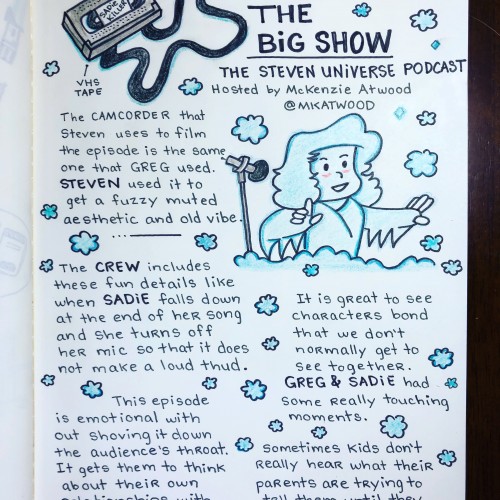 SADIE
KILLER
VHS
TAPE
THE
BiG SHOW
THE STEVEN UNiVERSE PODCAST
Hosted by McKenzie Atwood
@MKATWOOD
The CAMCORDER that
Steven uses to film
the episode is the same
one that GREG used.
STEVEN used it to
get a fuzzy muted
aesthetic and old vibe.
The CREW includes
these fun details like
when SADiE falls down
at the end of her song
and she turns off
her mic so that it does
not make a loud thud.
This episode
is emotional with
out shoving it down
the audience's throat.
It gets them to think
about their own
relationships with
It is great to see
characters bond
that we don't
normally get to
see together.
GREG & SADiE had
some really touching
moments.
Sometimes kids don't
really hear what their
parents are trying to
tell them until they